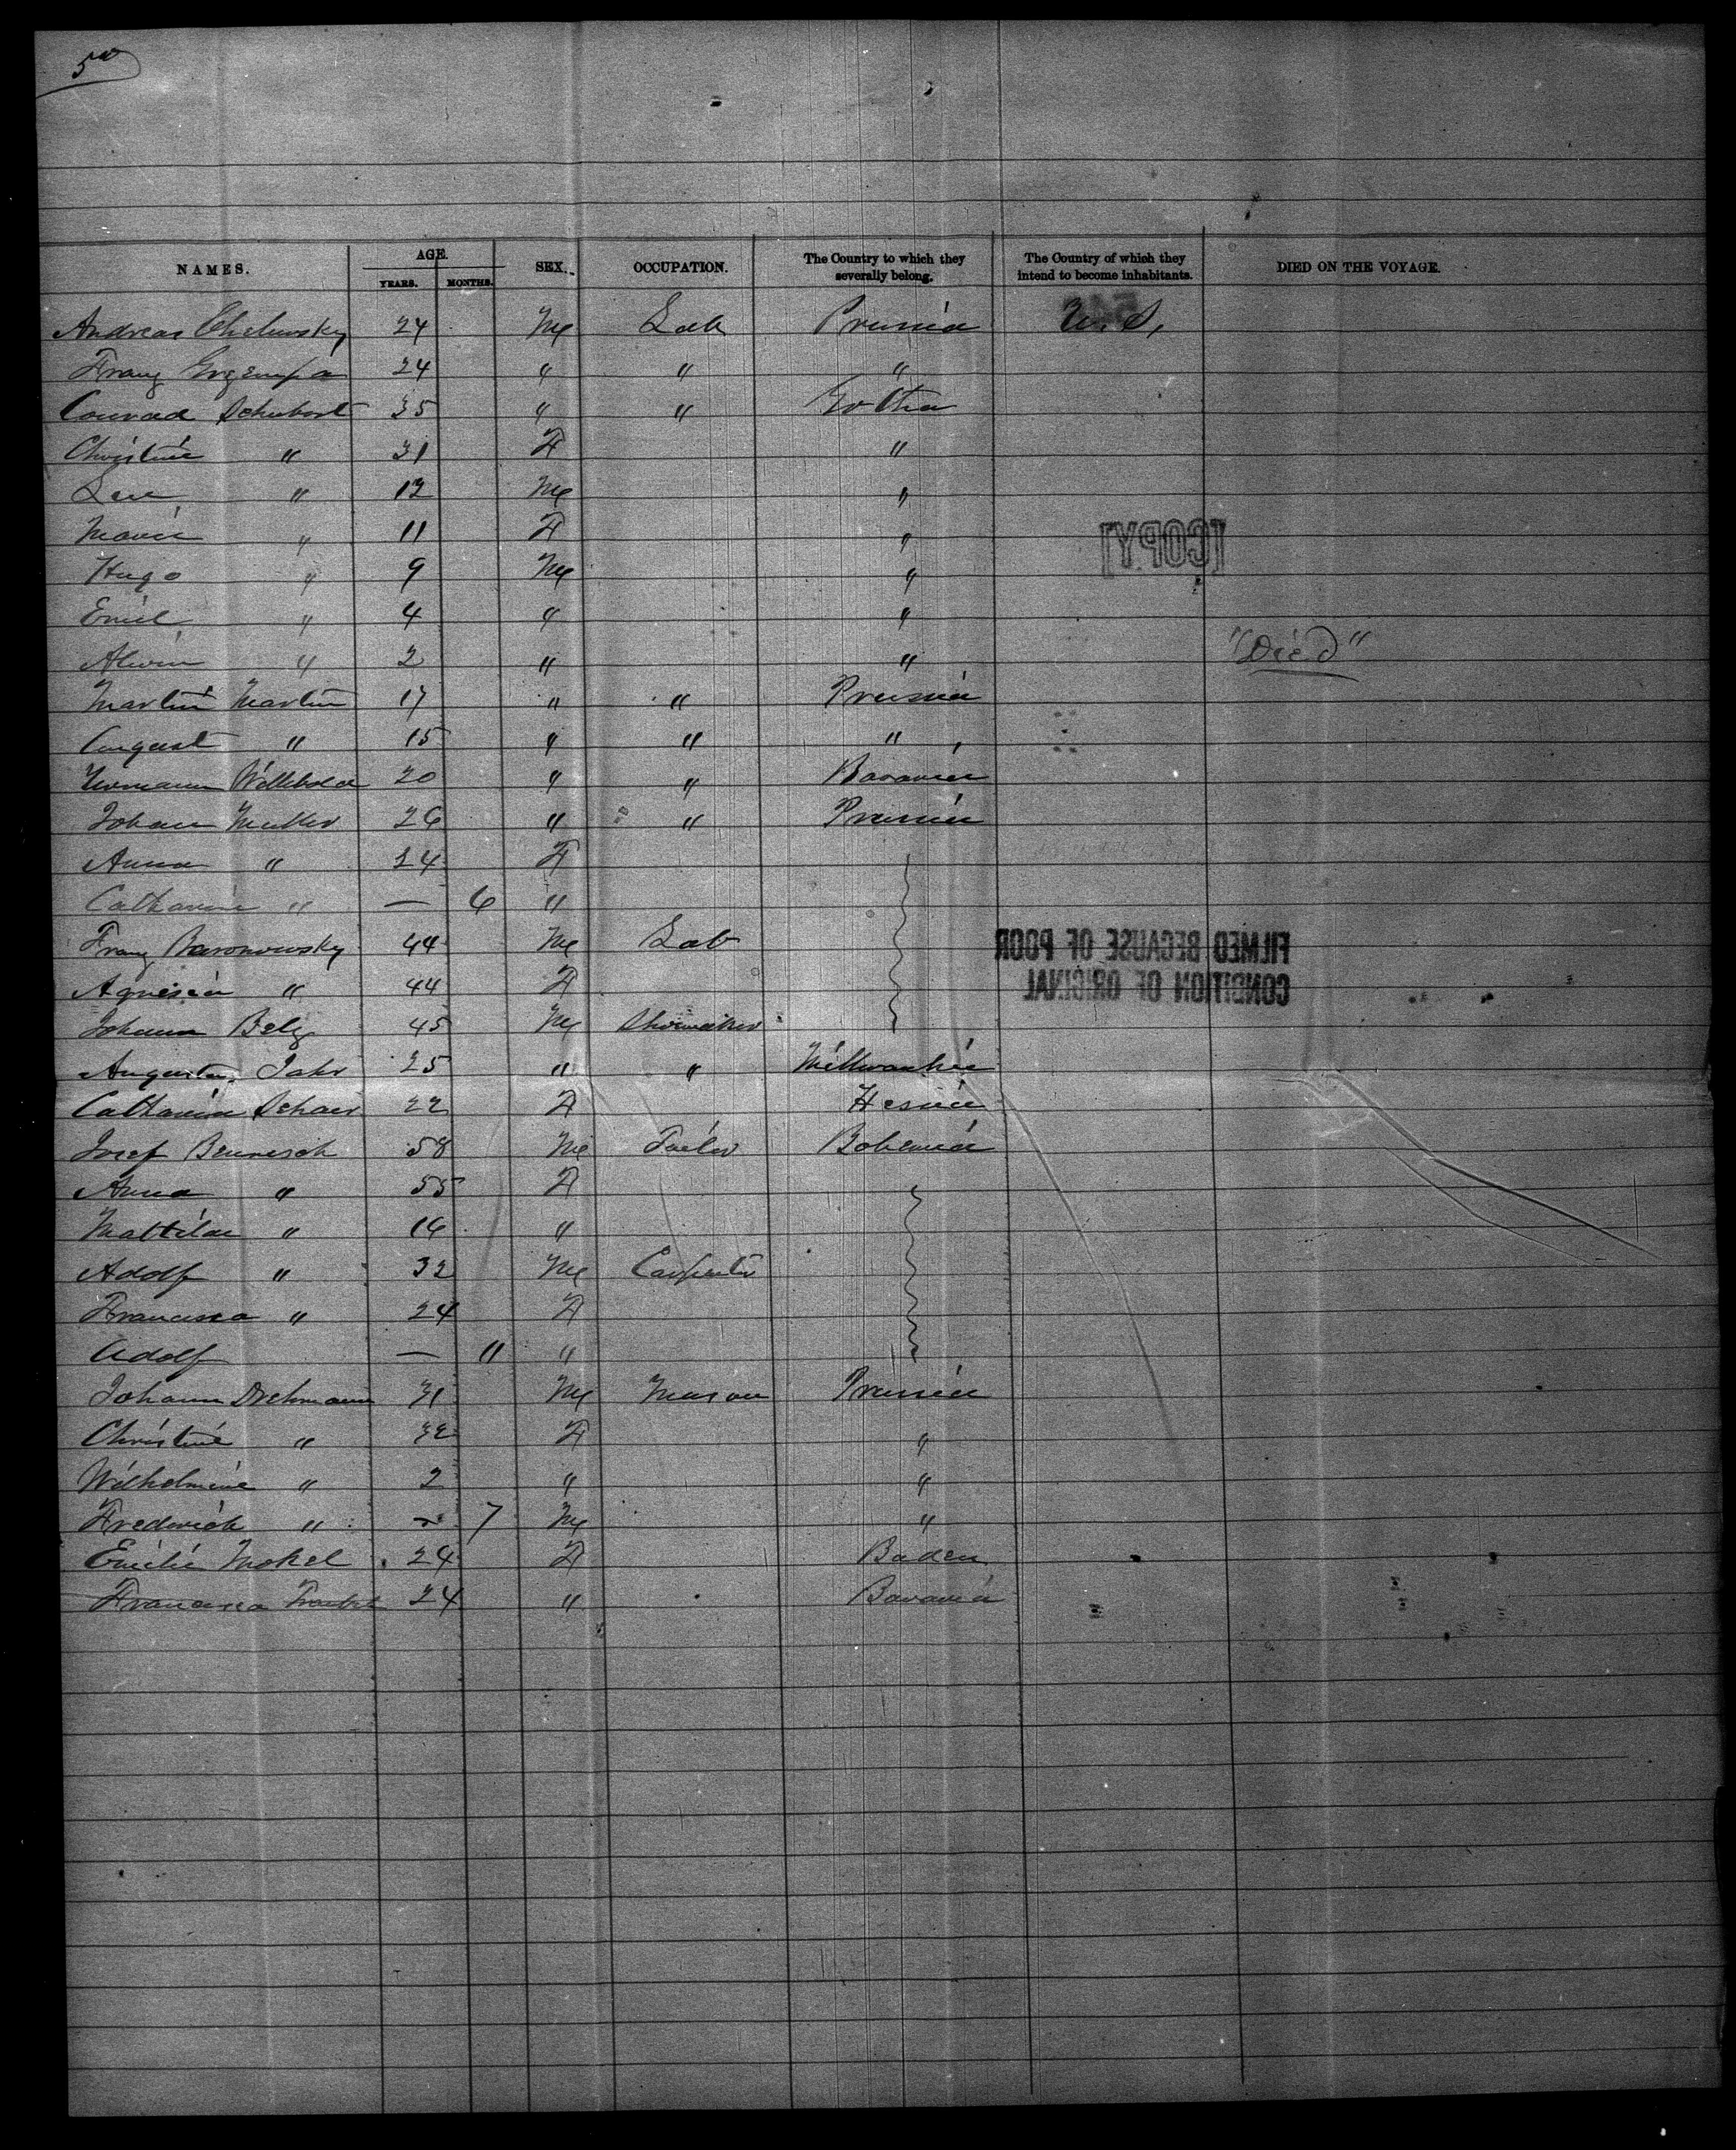 5
NAMES. AGE. YEARS. MONTHS. SEX. OCCUPATION. The Country to which they severally belong. The Country of which they intend to become inhabitants. DIED ON THE VOYAGE.
Andreas Chelewsky 24 M Lab Prussia U. S.
Franz 24 " " "
Conrad Schubert 35 " " Gotha
Christine " 31 F "
" 12 M "
Marie " 11 F "
Hugo " 9 M "
Emil " 4 " "
Alwin " 2 " " "Died"
Martin Martin 17 " " Prussia
August " 15 " " "
Hermann Willibald 20 " " Bavaria
Johann Muller 26 " " Prussia
Anna " 24 F
Catharine " — 6 "
Franz Baronowsky 44 M Lab
Agnesia " 44 F
Johann Belz 45 M Shoemaker
Augustus Jahr 25 " " Millwaukie
Catharina Schaer 22 F Hessia
Josef Beunesch 58 M Tailor Bohemia
Anna " 55 F
Mattilde " 16 "
Adolf " 32 M Carpenter
Francisca " 24 F
Adolf — 11 "
Johann Dichmann 31 M Mason Prussia
Christine " 32 F "
Wilhelmine " 2 " "
Frederick " — 7 M "
Emilie Mokel 24 F Baden
Francisca 24 " Bavaria
[COPY]
FILMED BECAUSE OF POOR
CONDITION OF ORIGINAL